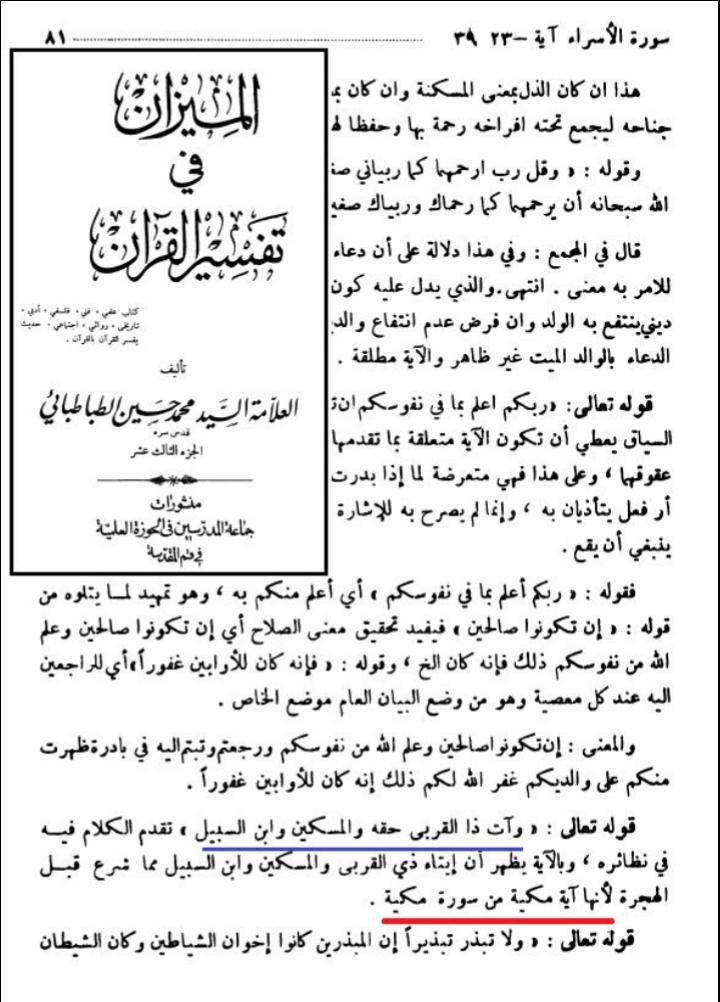 سورة الأسراء آية – ٢٣ ٣٩ ٨١
هذا ان كان الذل بمعنى المسكنة وان كان بم
جناحه ليجمع تحته افراخه رحمة بها وحفظا لها
وقوله : « وقل رب ارحمهما كما ربياني صغ
الله سبحانه أن يرحمهما كما رحماك وربياك صغي
قال في المجمع : وفي هذا دلالة على أن دعاء
للامر به معنى . انتهى . والذي يدل عليه كون
ديني ينتفع به الولد وان فرض عدم انتفاع والد
الدعاء بالوالد الميت غير ظاهر والآية مطلقة .
قوله تعالى: «ربكم اعلم بما في نفوسكم ان ت
السياق يعطي أن تكون الآية متعلقة بما تقدمها
عقوقهما ، وعلى هذا فهي متعرضة لما إذا بدرت
أو فعل يتأذيان به ، وإنما لم يصرح به للإشارة
ينبغي أن يقع .
الميزان
في
تفسير القرآن
كتاب علمي ، فني ، فلسفي ، أدبي ،
تاريخي ، روائي ، اجتماعي ، حديث
يفسر القرآن بالقرآن .
تأليف
العلامة السيد محمد حسين الطباطبائي
قدس سره
الجزء الثالث عشر
منشورات
جماعة المدرسين في الحوزة العلمية
في قم المقدسة
فقوله : « ربكم أعلم بما في نفوسكم » أي أعلم منكم به ، وهو تمهيد لما يتلوه من
قوله : « إن تكونوا صالحين » فيفيد تحقيق معنى الصلاح أي إن تكونوا صالحين وعلم
الله من نفوسكم ذلك فإنه كان الخ ، وقوله : « فإنه كان للأوابين غفوراً » أي للراجعين
اليه عند كل معصية وهو من وضع البيان العام موضع الخاص .
والمعنى : إن تكونوا صالحين وعلم الله من نفوسكم ورجعتم وتبتم اليه في بادرة ظهرت
منكم على والديكم غفر الله لكم ذلك إنه كان للأوابين غفوراً .
قوله تعالى : « وآت ذا القربى حقه والمسكين وابن السبيل » تقدم الكلام فيه
في نظائره ، وبالآية يظهر أن إيتاء ذي القربى والمسكين وابن السبيل مما شرع قبل
الهجرة لأنها آية مكية من سورة مكية .
قوله تعالى : « ولا تبذر تبذيراً إن المبذرين كانوا إخوان الشياطين وكان الشيطان